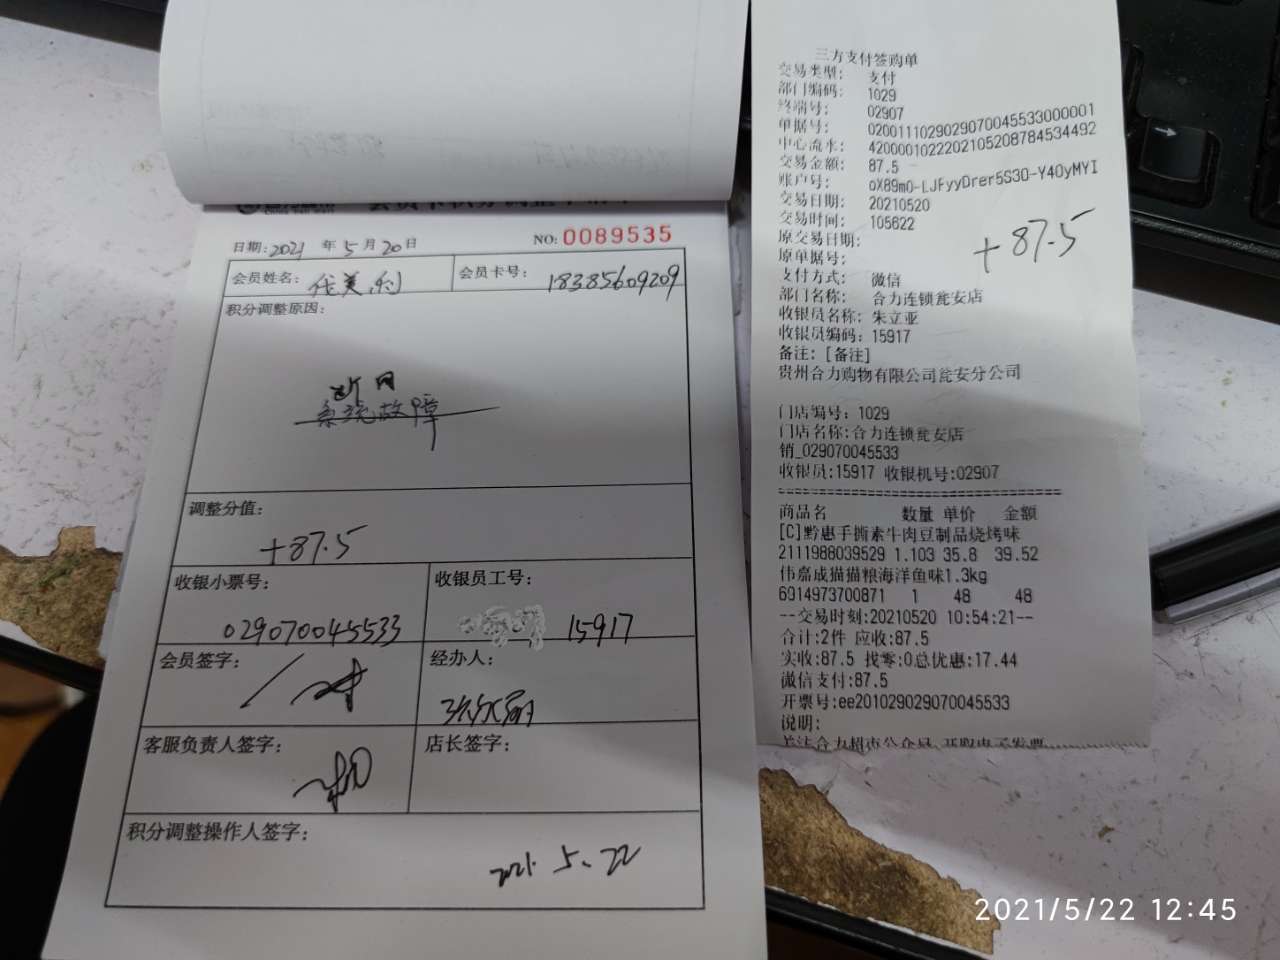 日期:2021 年 5 月 20 日
NO: 0089535
会员姓名: 代美
会员卡号: 18385609209
积分调整原因:
断网
系统故障
调整分值:
+87.5
收银小票号:
029070045533
收银员工号:
15917
会员签字:
经办人:
客服负责人签字:
店长签字:
积分调整操作人签字:
2021.5.22
三方支付签购单
交易类型: 支付
部门编码: 1029
终端号: 02907
单据号: 020011102902907004553300 0001
中心流水: 4200001022202105208784534492
交易金额: 87.5
账户号: oX89m0-LJFyyDrer5S30-Y40yMYI
交易日期: 20210520
交易时间: 105622
原交易日期:
+87.5
原单据号:
支付方式: 微信
部门名称: 合力连锁瓮安店
收银员名称: 朱立亚
收银员编码: 15917
备注: [备注]
贵州合力购物有限公司瓮安分公司
门店编号: 1029
门店名称:合力连锁瓮安店
销_029070045533
收银员:15917 收银机号:02907
商品名 数量 单价 金额
[C]黔惠手撕素牛肉豆制品烧烤味
2111988039529 1.103 35.8 39.52
伟嘉成猫猫粮海洋鱼味1.3kg
6914973700871 1 48 48
--交易时刻:20210520 10:54:21--
合计:2件 应收:87.5
实收:87.5 找零:0总优惠:17.44
微信支付:87.5
开票号:ee201029029070045533
说明:
关注合力超市公众号,开取电子发票
2021/5/22 12:45